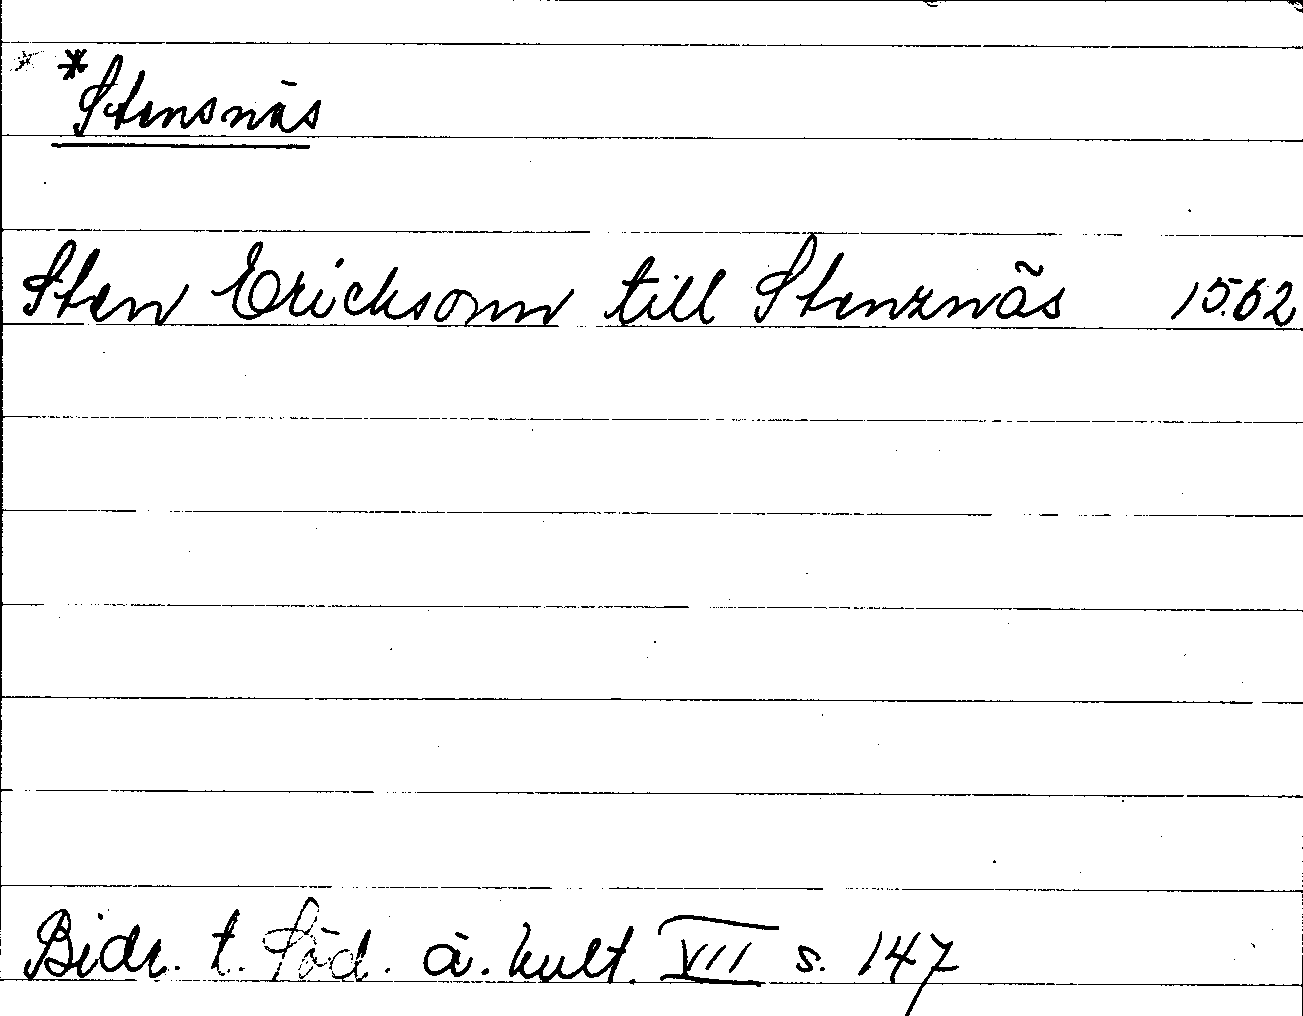 * *Stensnäs
Sten Ericksonn till Stenznäs 1562
Bidr. t. Söd. ä. kult. VII s. 147